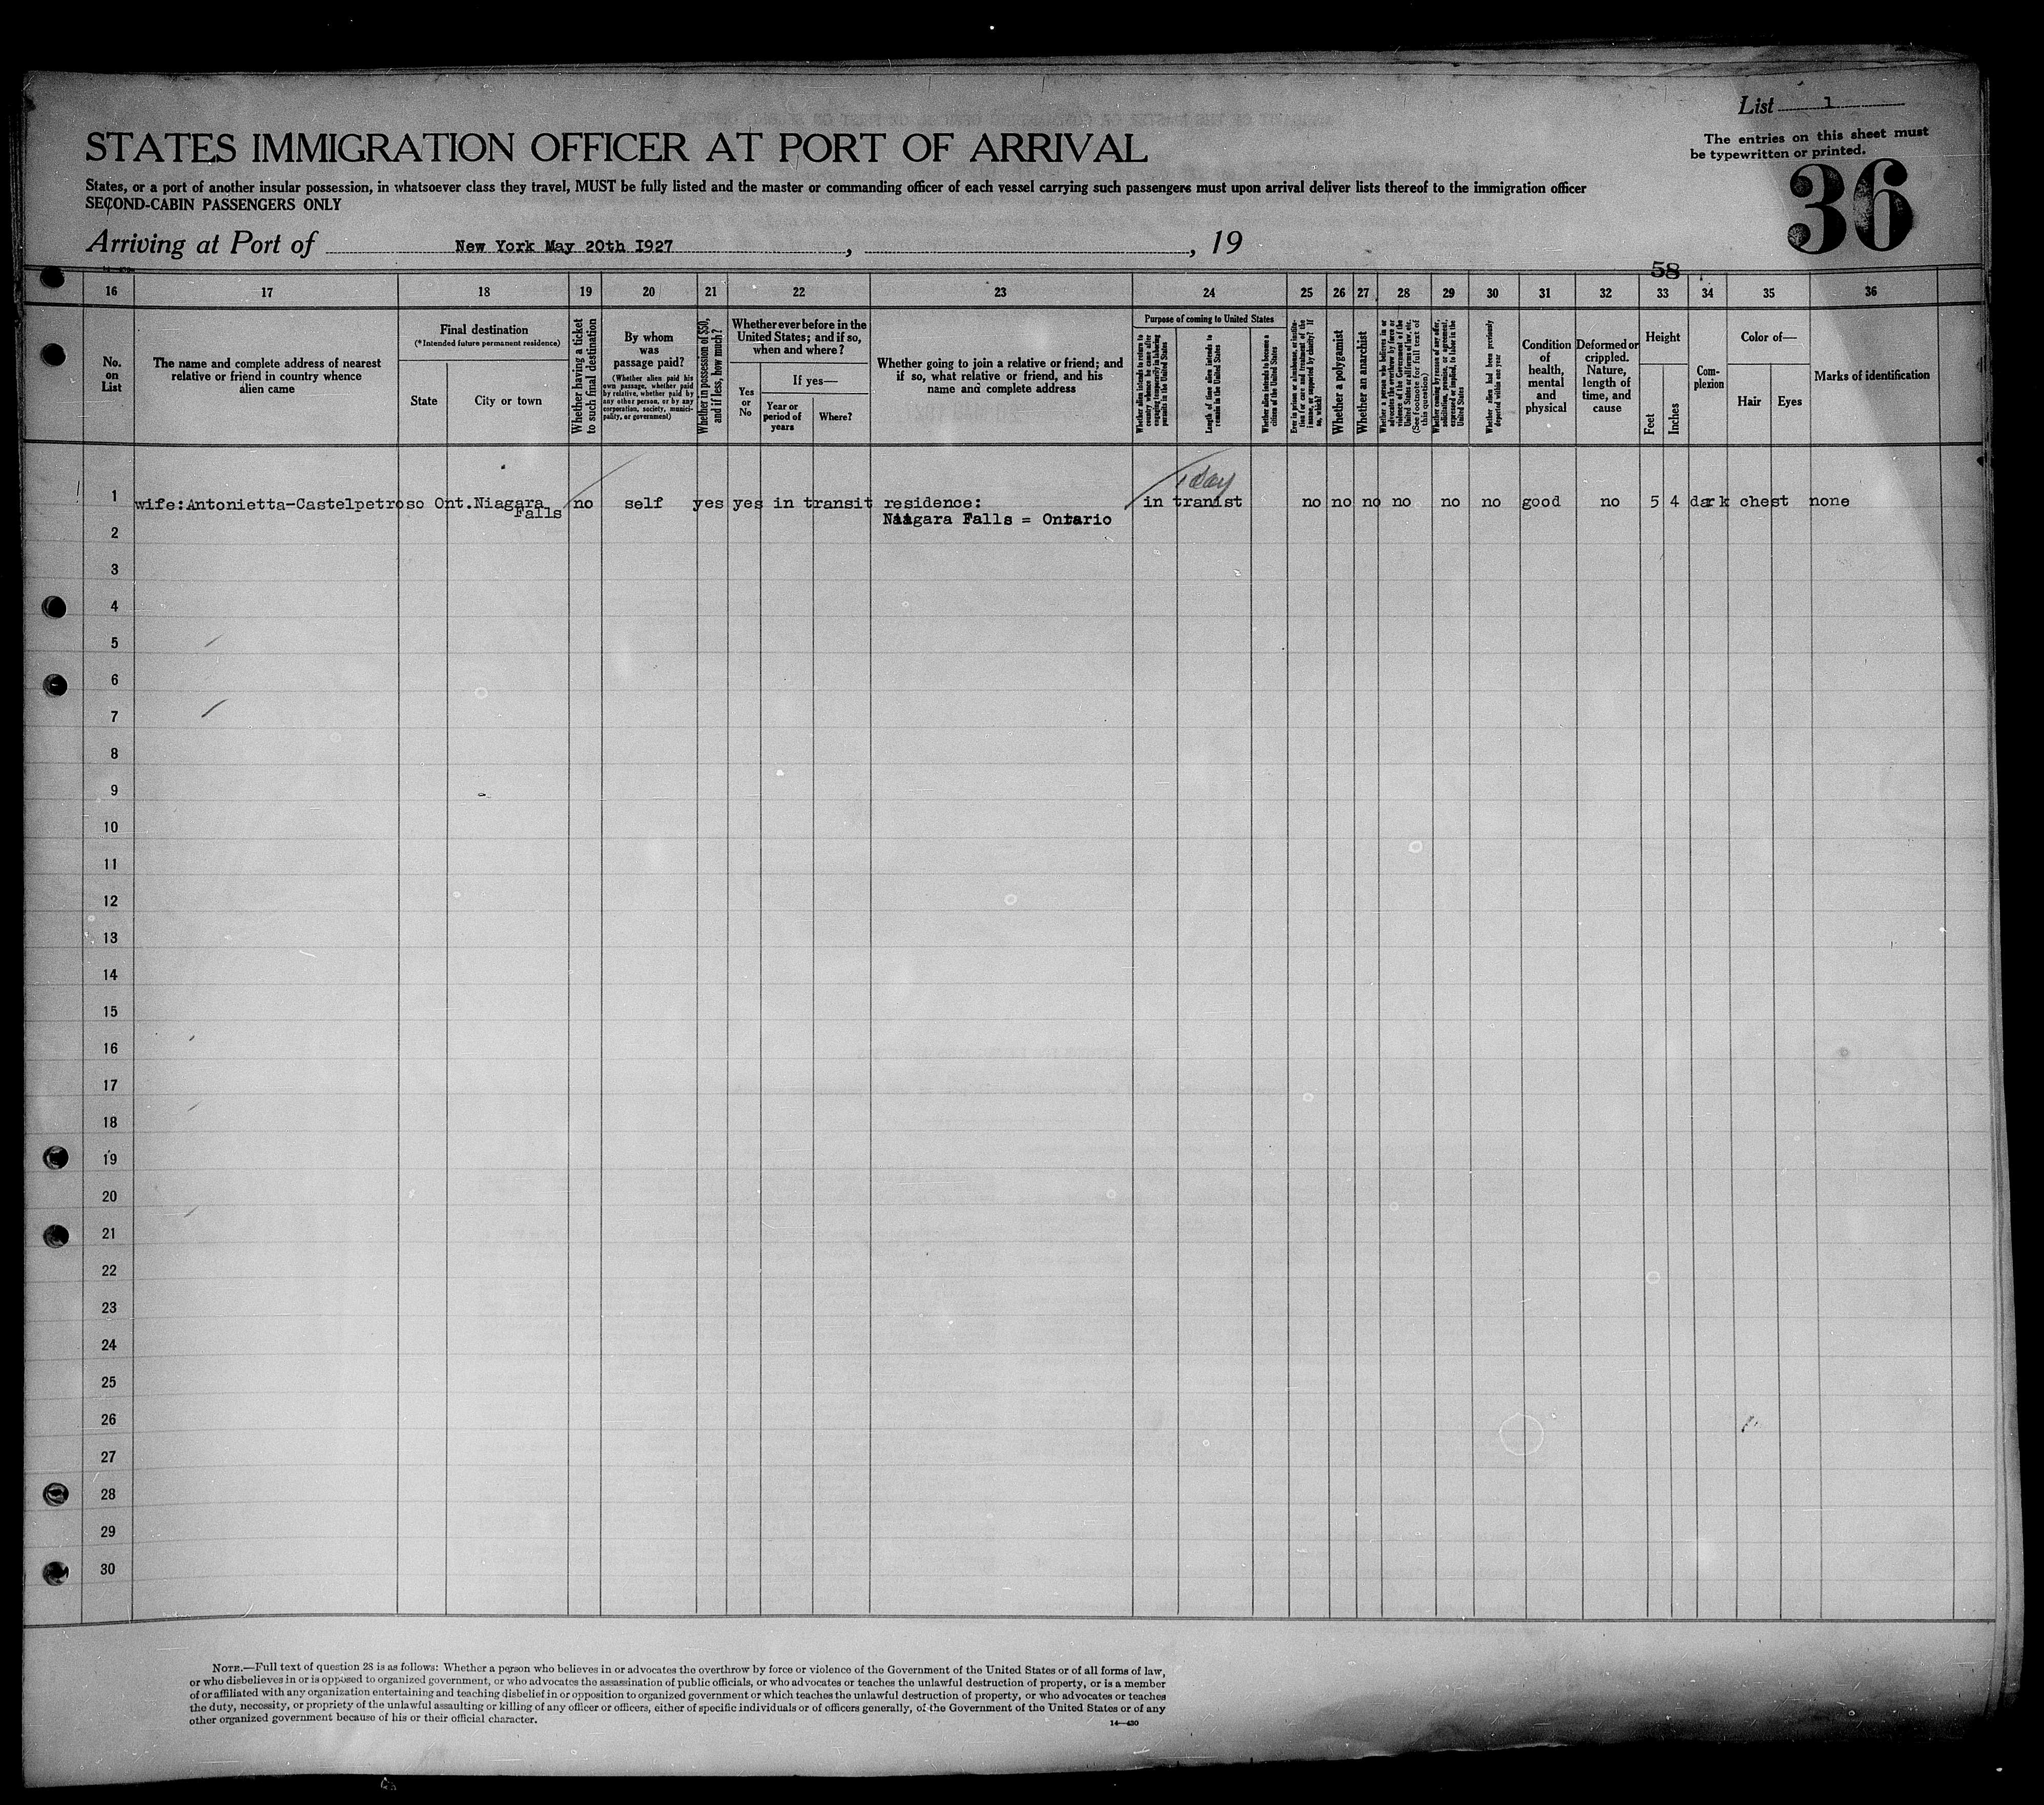 List 1
The entries on this sheet must
be typewritten or printed.
36
STATES IMMIGRATION OFFICER AT PORT OF ARRIVAL
States, or a port of another insular possession, in whatsoever class they travel, MUST be fully listed and the master or commanding officer of each vessel carrying such passengers must upon arrival deliver lists thereof to the immigration officer
SECOND-CABIN PASSENGERS ONLY
Arriving at Port of New York May 20th 1927, , 19
58
16 17 18 19 20 21 22 23 24 25 26 27 28 29 30 31 32 33 34 35 36
No.
on
List
The name and complete address of nearest
relative or friend in country whence
alien came
Final destination
(*Intended future permanent residence)
State
City or town
Whether having a ticket
to such final destination
By whom
was
passage paid?
(Whether alien paid his
own passage, whether paid
by relative, whether paid by
any other person, or by any
corporation, society, munici-
pality, or government)
Whether in possession of $50,
and if less, how much?
Whether ever before in the
United States; and if so,
when and where?
Yes
or
No
If yes—
Year or
period of
years
Where?
Whether going to join a relative or friend; and
if so, what relative or friend, and his
name and complete address
Purpose of coming to United States
Whether alien intends to return to
country whence he came after
engaging temporarily in laboring
pursuits in the United States
Length of time alien intends to
remain in the United States
Whether alien intends to become a
citizen of the United States
Ever in prison or almshouse, or institu-
tion for care and treatment of the
insane, or supported by charity? If
so, which?
Whether a polygamist
Whether an anarchist
Whether a person who believes in or
advocates the overthrow by force or
violence of the Government of the
United States or all forms of law, etc.
(See footnote for full text of
this question)
Whether coming by reason of any offer,
solicitation, promise, or agreement,
expressed or implied, to labor in the
United States
Whether alien had been previously
deported within one year
Condition
of
health,
mental
and
physical
Deformed or
crippled.
Nature,
length of
time, and
cause
Height
Feet
Inches
Com-
plexion
Color of—
Hair
Eyes
Marks of identification
1 day
1 wife:Antonietta-Castelpetroso Ont.Niagara no self yes yes in transit residence: in tranist no no no no no no good no 5 4 dark chest none
Falls
Niagara Falls = Ontario
2
3
4
5
6
7
8
9
10
11
12
13
14
15
16
17
18
19
20
21
22
23
24
25
26
27
28
29
30
NOTE.—Full text of question 28 is as follows: Whether a person who believes in or advocates the overthrow by force or violence of the Government of the United States or of all forms of law,
or who disbelieves in or is opposed to organized government, or who advocates the assassination of public officials, or who advocates or teaches the unlawful destruction of property, or is a member
of or affiliated with any organization entertaining and teaching disbelief in or opposition to organized government or which teaches the unlawful destruction of property, or who advocates or teaches
the duty, necessity, or propriety of the unlawful assaulting or killing of any officer or officers, either of specific individuals or of officers generally, of the Government of the United States or of any
other organized government because of his or their official character.
14—430